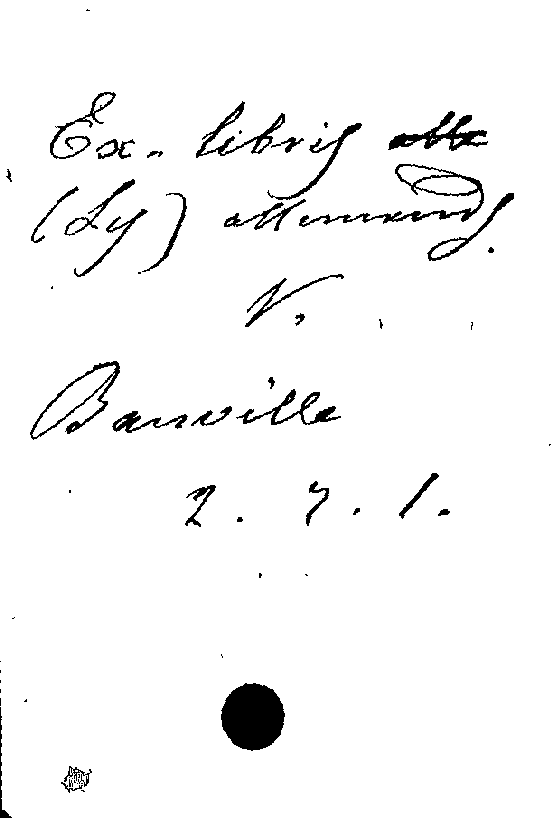 Ex-libris
(Ly) allemands.
V.
Banville
2. 7. 1.